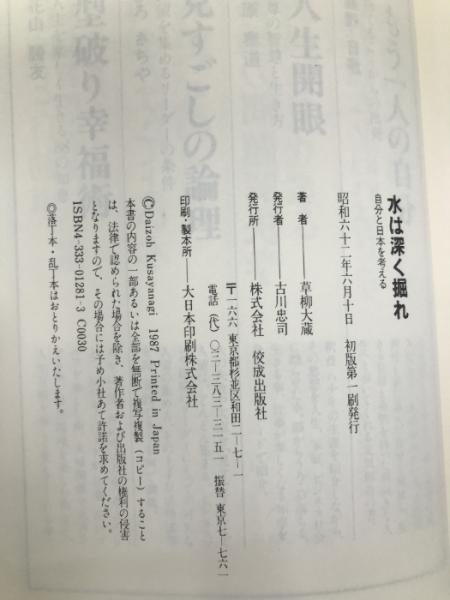 水は深く掘れ
自分と日本を考える
昭和六十二年六月十日　初版第一刷発行
著　者――草柳大蔵
発行者――古川忠司
発行所――株式会社　佼成出版社
〒一六六　東京都杉並区和田二-七-一
電話（代）〇三-三八三-三一五一　振替　東京七-七六一
印刷・製本所――大日本印刷株式会社
©Daizoh Kusayanagi 1987 Printed in Japan
本書の内容の一部あるいは全部を無断で複写複製（コピー）すること
は、法律で認められた場合を除き、著作者および出版社の権利の侵害
となりますので、その場合には予め小社あて許諾を求めてください。
ISBN4-333-01281-3 C0030
◎落丁本・乱丁本はおとりかえいたします。
もう一人の自
人生開眼
見すごしの論理
型破り幸福